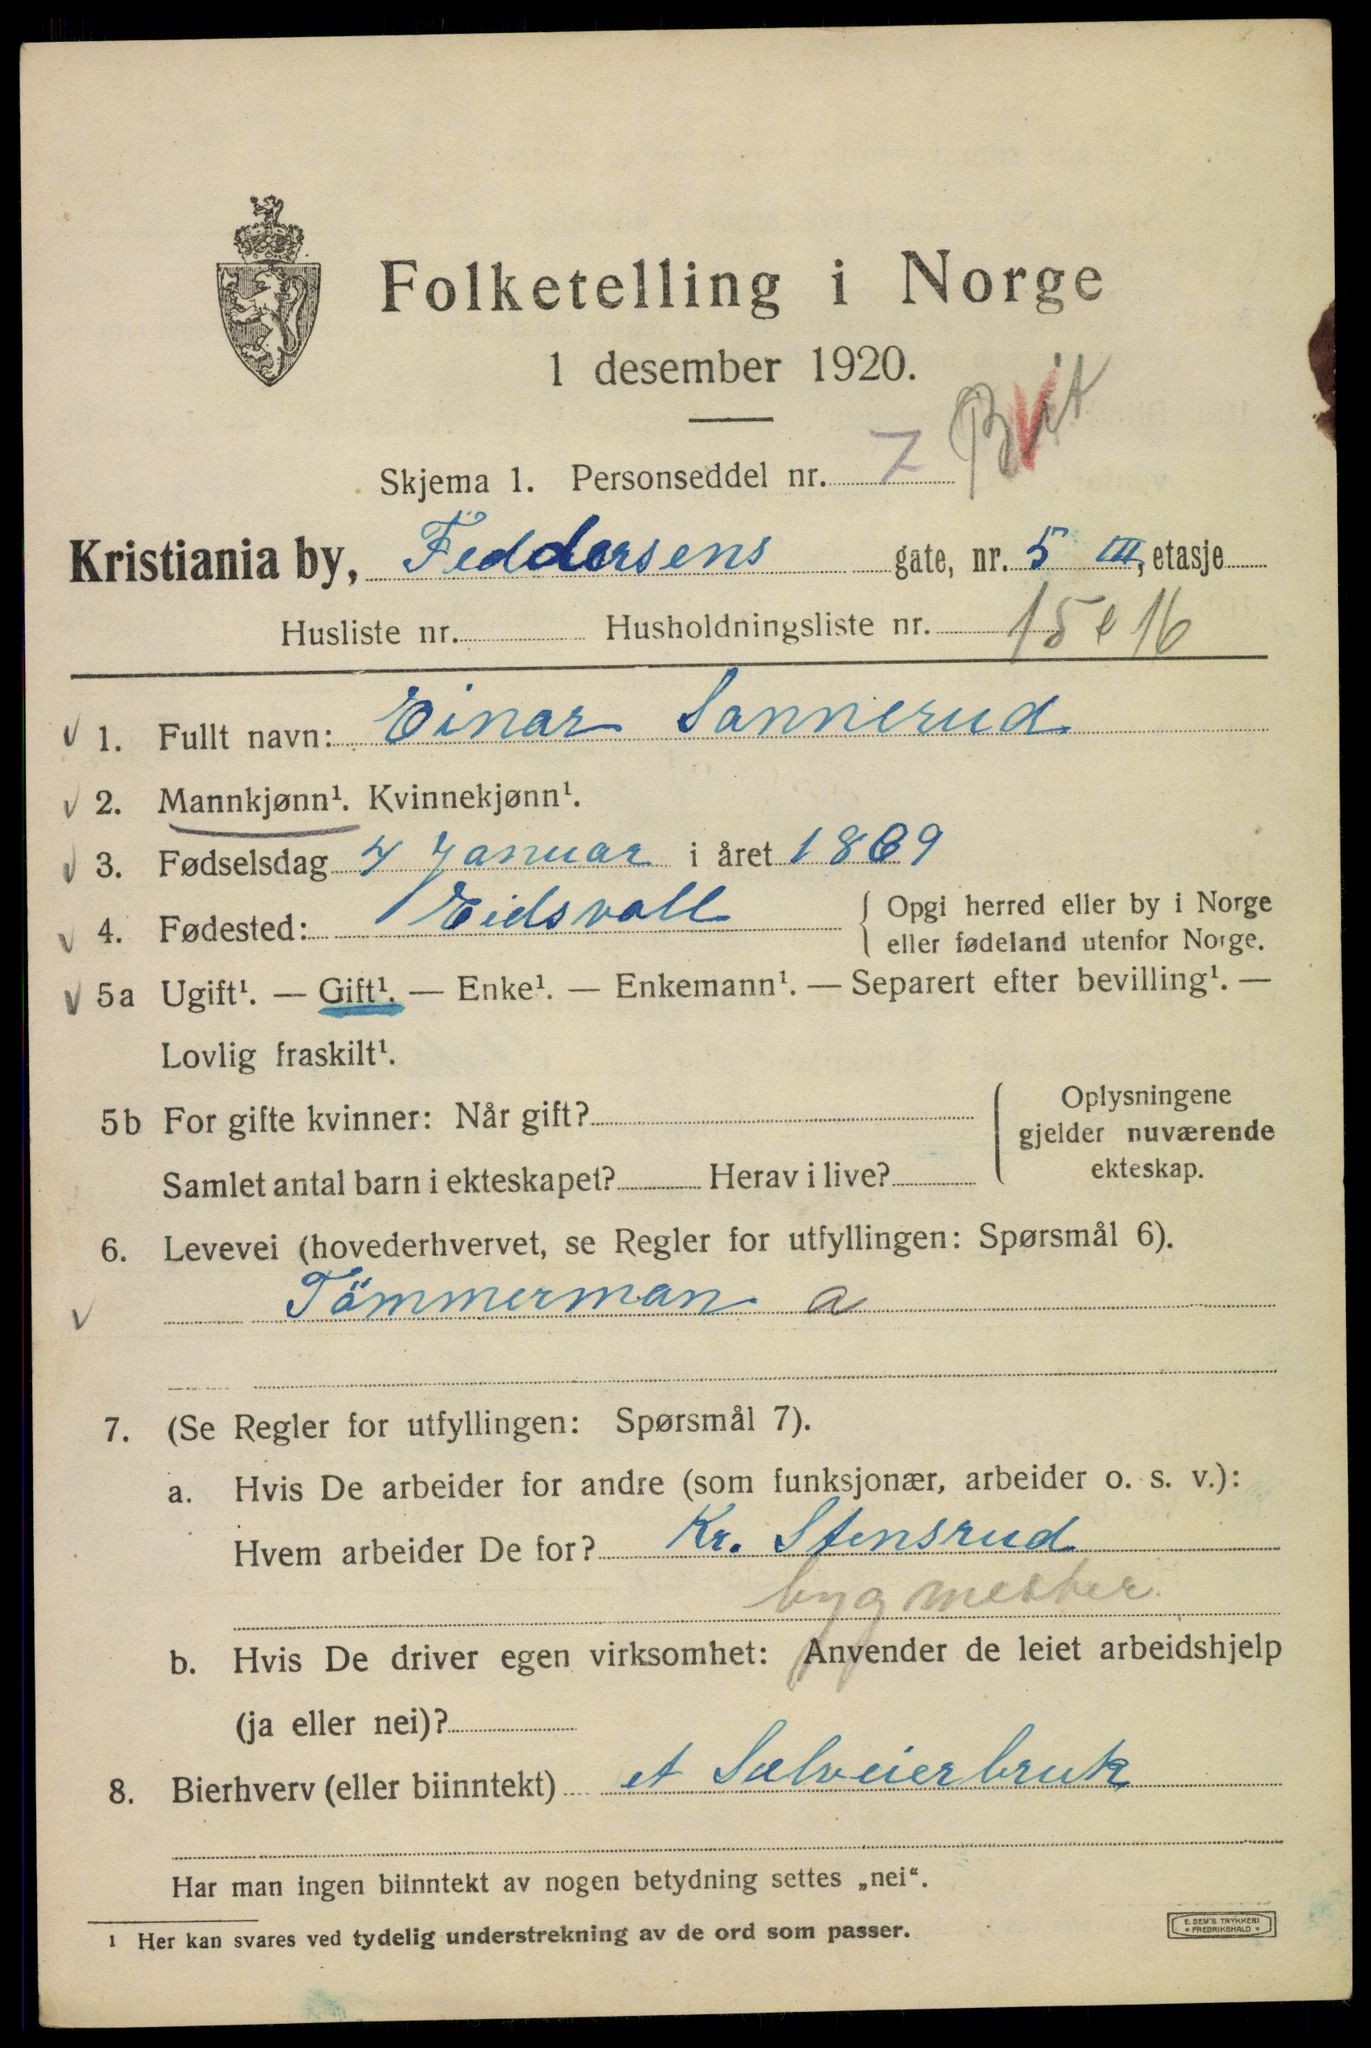 Folketelling i Norge
1 desember 1920.
Skjema 1. Personseddel nr. 7
Kristiania by, Feddersens gate, nr. 5 III, etasje
Husliste nr. Husholdningsliste nr. 15 & 16
1. Fullt navn: Einar Sannerud
2. Mannkjønn¹. Kvinnekjønn¹.
3. Fødselsdag 4 Januar i året 1869
4. Fødested: Eidsvoll { Opgi herred eller by i Norge
eller fødeland utenfor Norge.
5a Ugift¹. — Gift¹. — Enke¹. — Enkemann¹. — Separert efter bevilling¹. —
Lovlig fraskilt¹.
5b For gifte kvinner: Når gift? { Oplysningene
gjelder nuværende
Samlet antal barn i ekteskapet? Herav i live? ekteskap.
6. Levevei (hovederhvervet, se Regler for utfyllingen: Spørsmål 6).
Tömmerman a
7. (Se Regler for utfyllingen: Spørsmål 7).
a. Hvis De arbeider for andre (som funksjonær, arbeider o. s. v.):
Hvem arbeider De for? Kr. Stensrud
bygmester
b. Hvis De driver egen virksomhet: Anvender de leiet arbeidshjelp
(ja eller nei)?
8. Bierhverv (eller biinntekt) et Selveierbruk
Har man ingen biinntekt av nogen betydning settes „nei“.
1 Her kan svares ved tydelig understrekning av de ord som passer.
E. SEM'S TRYKKERI
FREDRIKSHALD